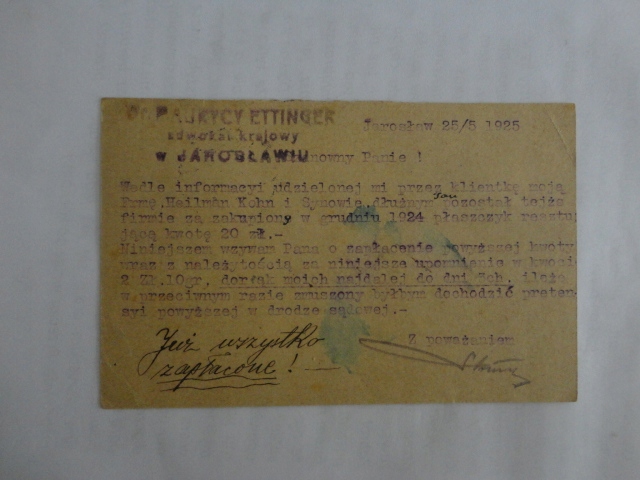 Dr. MAURYCY ETTINGER
adwokat krajowy
w JAROSŁAWIU
Jarosław 25/5 1925
Szanowny Panie !
Wedle informacyi udzielonej mi przez klientkę moją
Frmę.Heilman Kohn i Synowie dłużnym Pan pozostał tejże
firmie za zakupiony w grudniu 1924 płaszczyk resztu-
jącą kwotę 20 zł.-
Niniejszem wzywam Pana o zapłacenie powyższej kwoty
wraz z należytością za niniejsze upomnienie w kwocie
2 Zł.10gr, do rąk moich najdalej do dni 8ch. ileże
w przeciwnym razie zmuszony byłbym dochodzić preten-
syi powyższej w drodze sądowej.-
Z poważaniem
Już wszystko
zapłacone !